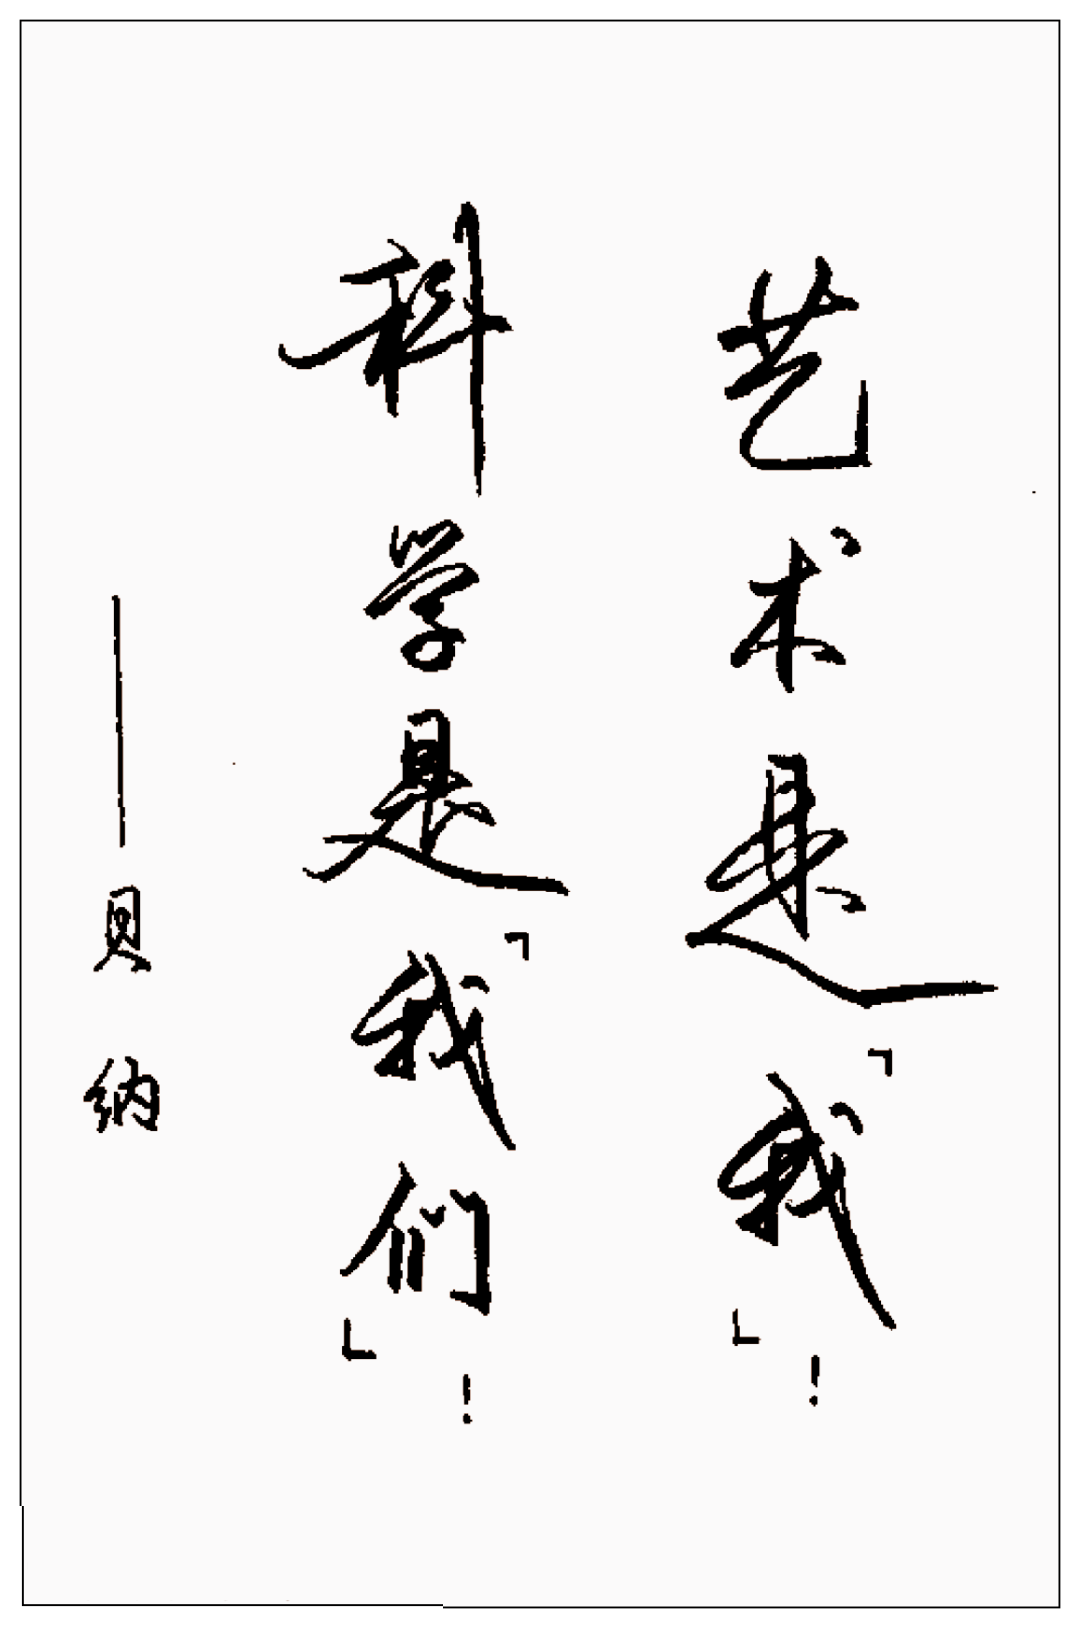 艺术是「我」!
科学是「我们」!
——贝纳